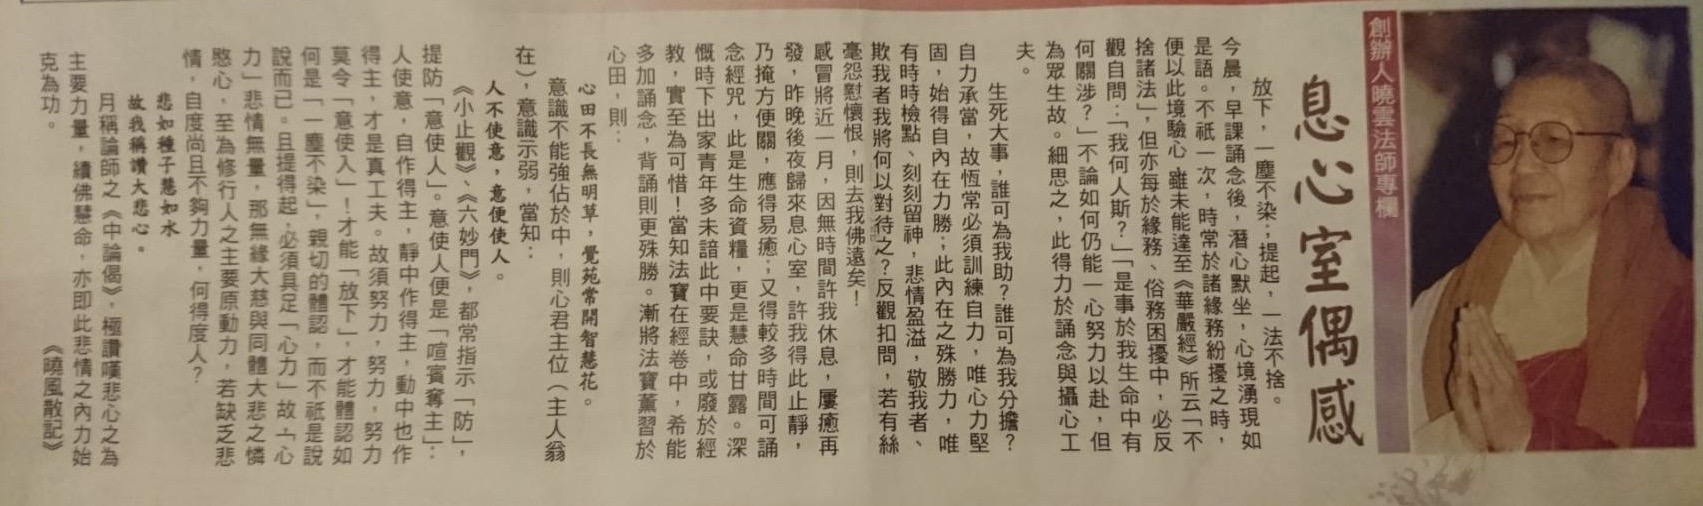 創辦人曉雲法師專欄
息心室偶感
放下，一塵不染；提起，一法不捨。
今晨，早課誦念後，潛心默坐，心境湧現如
是語。不祇一次，時常於諸緣務紛擾之時，
便以此境驗心，雖未能達至《華嚴經》所云「不
捨諸法」，但亦每於緣務、俗務困擾中，必反
觀自問：「我何人斯？」「是事於我生命中有
何關涉？」不論如何仍能一心努力以赴，但
為眾生故。細思之，此得力於誦念與攝心工
夫。
生死大事，誰可為我助？誰可為我分擔？
自力承當，故恆常必須訓練自力，唯心力堅
固，始得自內在力勝；此內在之殊勝力，唯
有時時檢點、刻刻留神，悲情盈溢，敬我者、
欺我者我將何以對待之？反觀扣問，若有絲
毫怨懟懷恨，則去我佛遠矣！
感冒將近一月，因無時間許我休息，屢癒再
發，昨晚後夜歸來息心室，許我得此止靜，
乃掩方便關，應得易癒；又得較多時間可誦
念經咒，此是生命資糧，更是慧命甘露。深
慨時下出家青年多未諳此中要訣，或廢於經
教，實至為可惜！當知法寶在經卷中，希能
多加誦念，背誦則更殊勝。漸將法寶薰習於
心田，則：
心田不長無明草，覺苑常開智慧花。
意識不能強佔於中，則心君主位（主人翁
在），意識示弱，當知：
人不使意，意便使人。
《小止觀》、《六妙門》，都常指示「防」，
提防「意使人」。意使人便是「喧賓奪主」：
人使意，自作得主，靜中作得主，動中也作
得主，才是真工夫。故須努力，努力，努力
莫令「意使人」！才能「放下」，才能體認如
何是「一塵不染」，親切的體認，而不祇是說
說而已。且提得起，必須具足「心力」故，「心
力」悲情無量，那無緣大慈與同體大悲之憐
愍心，至為修行人之主要原動力，若缺乏悲
情，自度尚且不夠力量，何得度人？
悲如種子慧如水
故我稱讚大悲心。
月稱論師之《中論偈》，極讚嘆悲心之為
主要力量，續佛慧命，亦即此悲情之內力始
克為功。
《曉風散記》